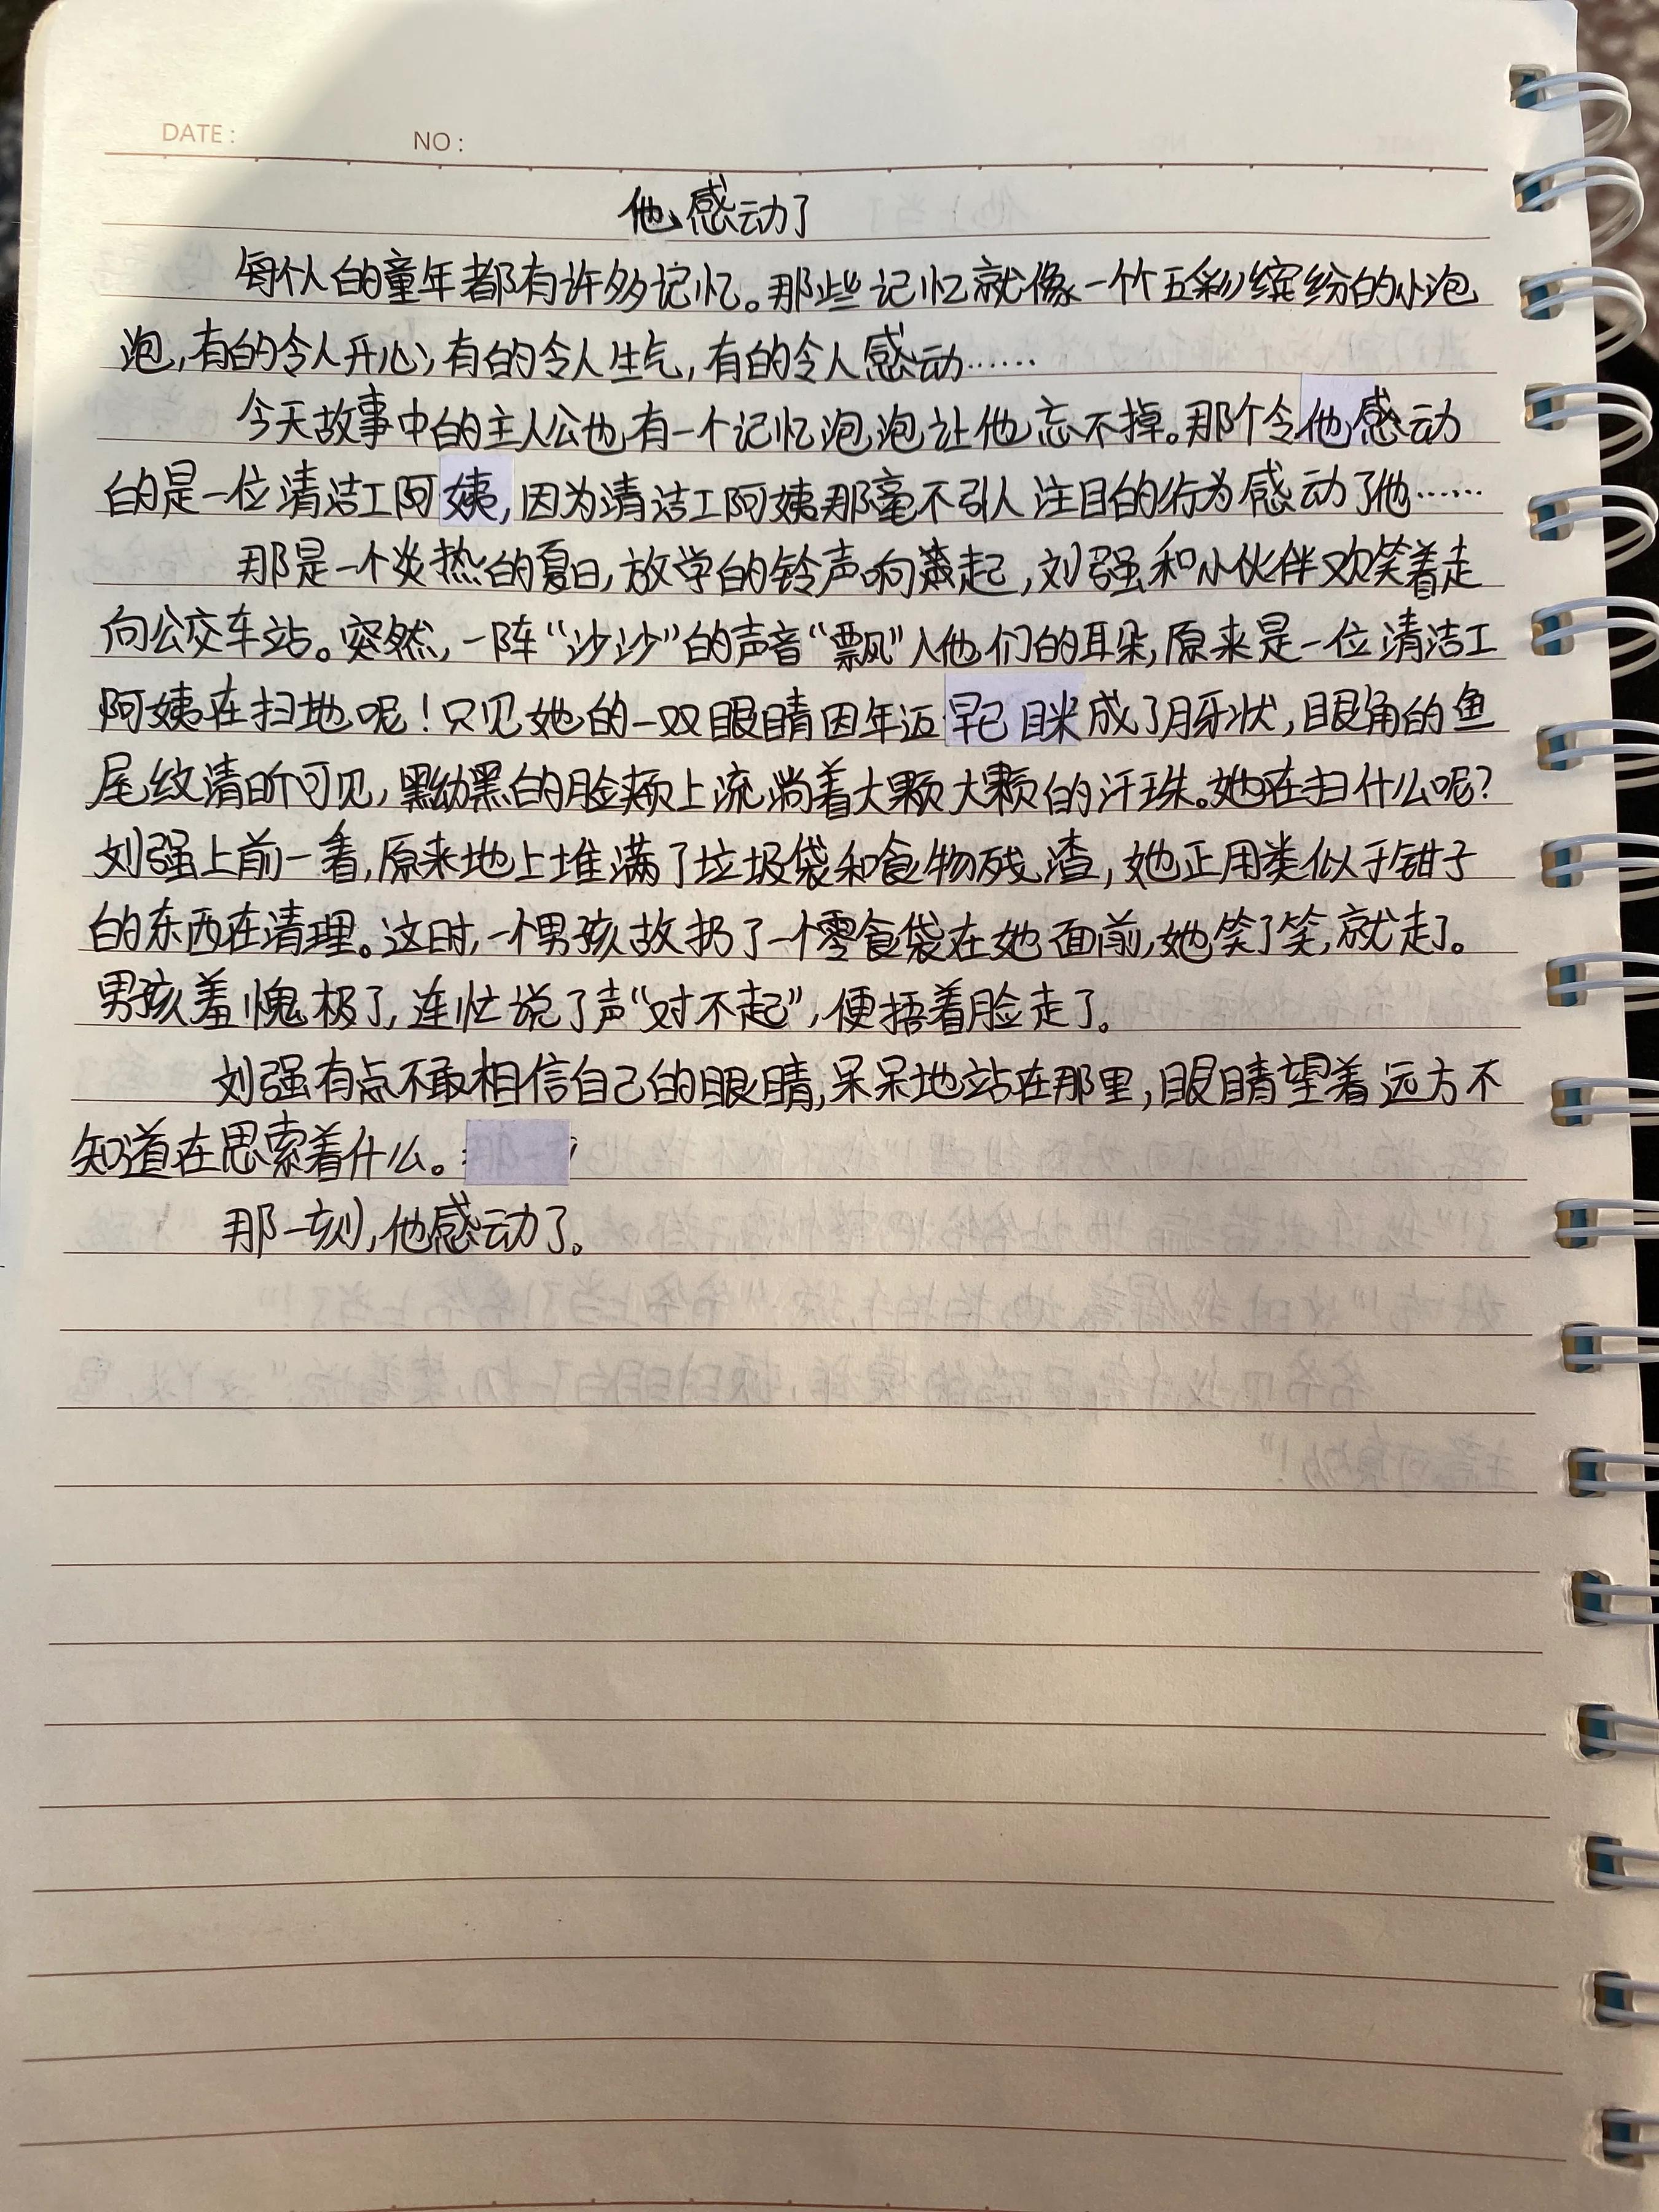 DATE:
NO:
他感动了
每个人的童年都有许多记忆。那些记忆就像一个个五彩缤纷的小泡
泡,有的令人开心,有的令人生气,有的令人感动……
今天故事中的主人公也有一个记忆泡泡让他忘不掉。那个令他感动
的是一位清洁工阿姨,因为清洁工阿姨那毫不引人注目的行为感动了他……
那是一个炎热的夏日,放学的铃声响起,刘强和小伙伴欢笑着走
向公交车站。突然,一阵“沙沙”的声音“飘”入他们的耳朵,原来是一位清洁工
阿姨在扫地呢!只见她的一双眼睛因年迈早已眯成了月牙状,眼角的鱼
尾纹清晰可见,黑黝黑的脸颊上流淌着大颗大颗的汗珠。她在扫什么呢?
刘强上前一看,原来地上堆满了垃圾袋和食物残渣,她正用类似于钳子
的东西在清理。这时,一个男孩故扔了一个零食袋在她面前,她笑了笑,就走了。
男孩羞愧极了,连忙说了声“对不起”,便捂着脸走了。
刘强有点不敢相信自己的眼睛,呆呆地站在那里,眼睛望着远方不
知道在思索着什么。
那一刻,他感动了。